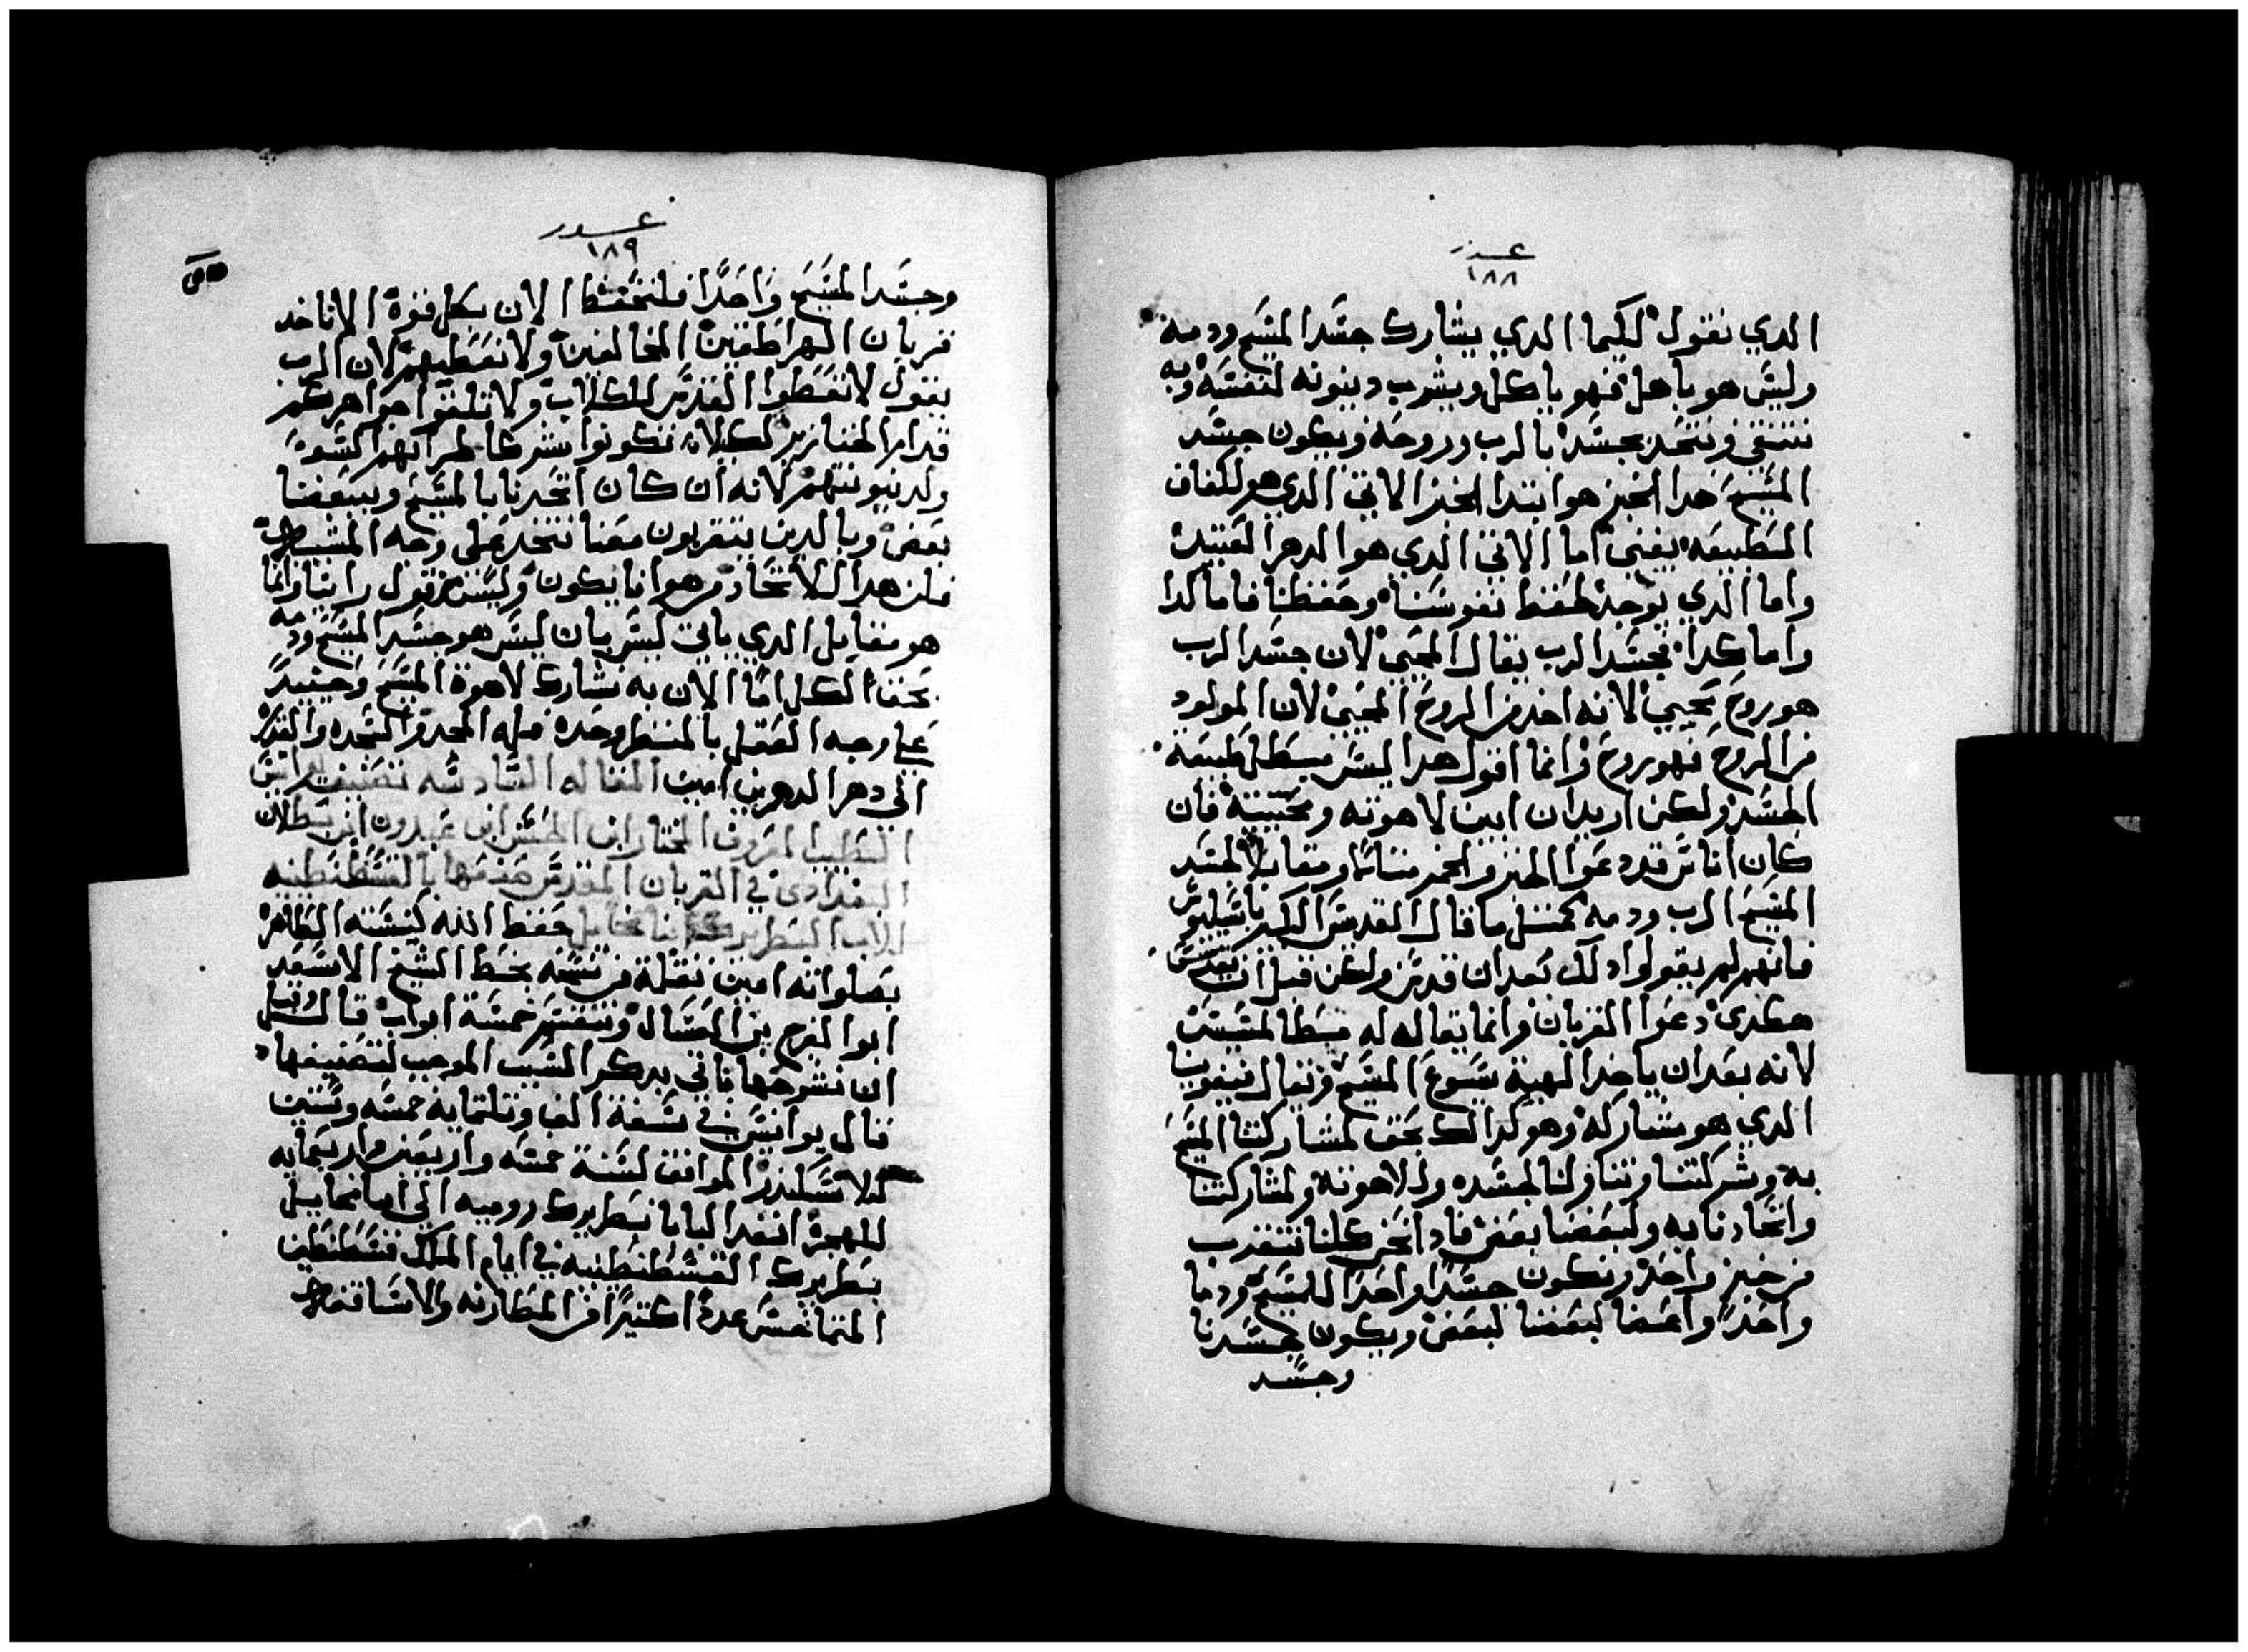 ١٨٨
الدي نقول لكيما الدي يشارك جسد المسيح ودمه
وليس هو باهل فهو ياكل ويشرب دينونه لنفسه وبه
نتنقي ونتحد بجسد الرب وروحه ويكون جسد
المسيح هدا الخبز هو ابتدا الخبز الاتي الدي هو الكفاف
الطبيعه يعني اما الاتي الدي هو الدهر العتيد
واما الدي يوجد لحفظ نفوسنا وحفظنا فاما كدا
واما كدا فجسد الرب يقال المحيي لان جسد الرب
هو روح محيي لانه اخد من الروح المحيي لان المولود
من الروح فهو روح وانما اقول هدا ليس مبطل طبيعة
الجسد ولكن اريد ان ابين لاهوته ومحييته فان
كان اناس قد دعوا الخبز والخمر مثالا ومقابلا لجسد
المسيح الرب ودمه كمثل ما قال القديس الكبير باسيليوس
فانهم لم يقولوا دلك بعد ان قدس ولكن قبل ان يتقدس
هكدي دعوا القربان وانما يقال له
لانه بعد ان ياخد الهية يسوع المسيح ويقال
الدي هو مشاركه وهو كدالك بحق لمشاركتنا المسيح
به وشركتنا وتناولنا لجسده ولاهوته ولمشاركتنا
واتحادنا به ولبعضنا بعض فاد نحن كلنا نتقرب
من خبز واحد ونكون جسدا واحدا للمسيح ودما
واحدا واعضا بعضنا لبعض ويكون جسدنا
وجسد
١٨٩
وجسد المسيح واحدا فلنحتفظ الان بكل قوة الا ناخد
قربان الهراطقين المخالفين ولا نعطيهم لان الرب
يقول لا تعطوا القدس للكلاب ولا تلقوا جواهركم
قدام الخنازير لكيلا تكونوا شركا لمرايهم السوء
ولدينونتهم لانه ان كان اتحدنا بالمسيح وببعضنا
بعض وبالدين يتقربون معنا نتحد على وجه
فان هدا الاتحاد من هوانا يكون وليس من قول راينا وانما
هو مقابل الدي ياتي ليس بان ليس هو جسد المسيح ودمه
بحق الكل اما الان به نشارك لاهوة المسيح وحينيد
على وجه العقل بالمنظر وحده فله المجد والسجده والقدره
الي دهر الدهرين امين المقاله السادسه تصنيف يوانيس
الطبيب المعروف المختار ابن الحسن ابن عبدون ابن بطلان
البغدادي في القربان المقدس صنفها بالقسطنطينيه
للاب البطريرك انبا مخاييل حفظ الله كنيسته الطاهر
بصلواته امين نقلة من نسخه بخط الشيخ الاسعد
ابو الفرج بن العسال وتنقسم خمسة ابواب قال وقبل
ان نشرحها ناتي بدكر السبب الموجب لتصنيفها
قال يوانيس في سنة الف وتلتمايه خمسه وستين
للاسكندر الموافق لسنة خمسه واربعين واربعمايه
للهجرة انفد البابا بطريرك روميه الي انبا مخاييل
بطريرك القسطنطينيه في ايام الملك قسطنطين
المتماخس عدة كتيرا من المطارنه والاساقفه